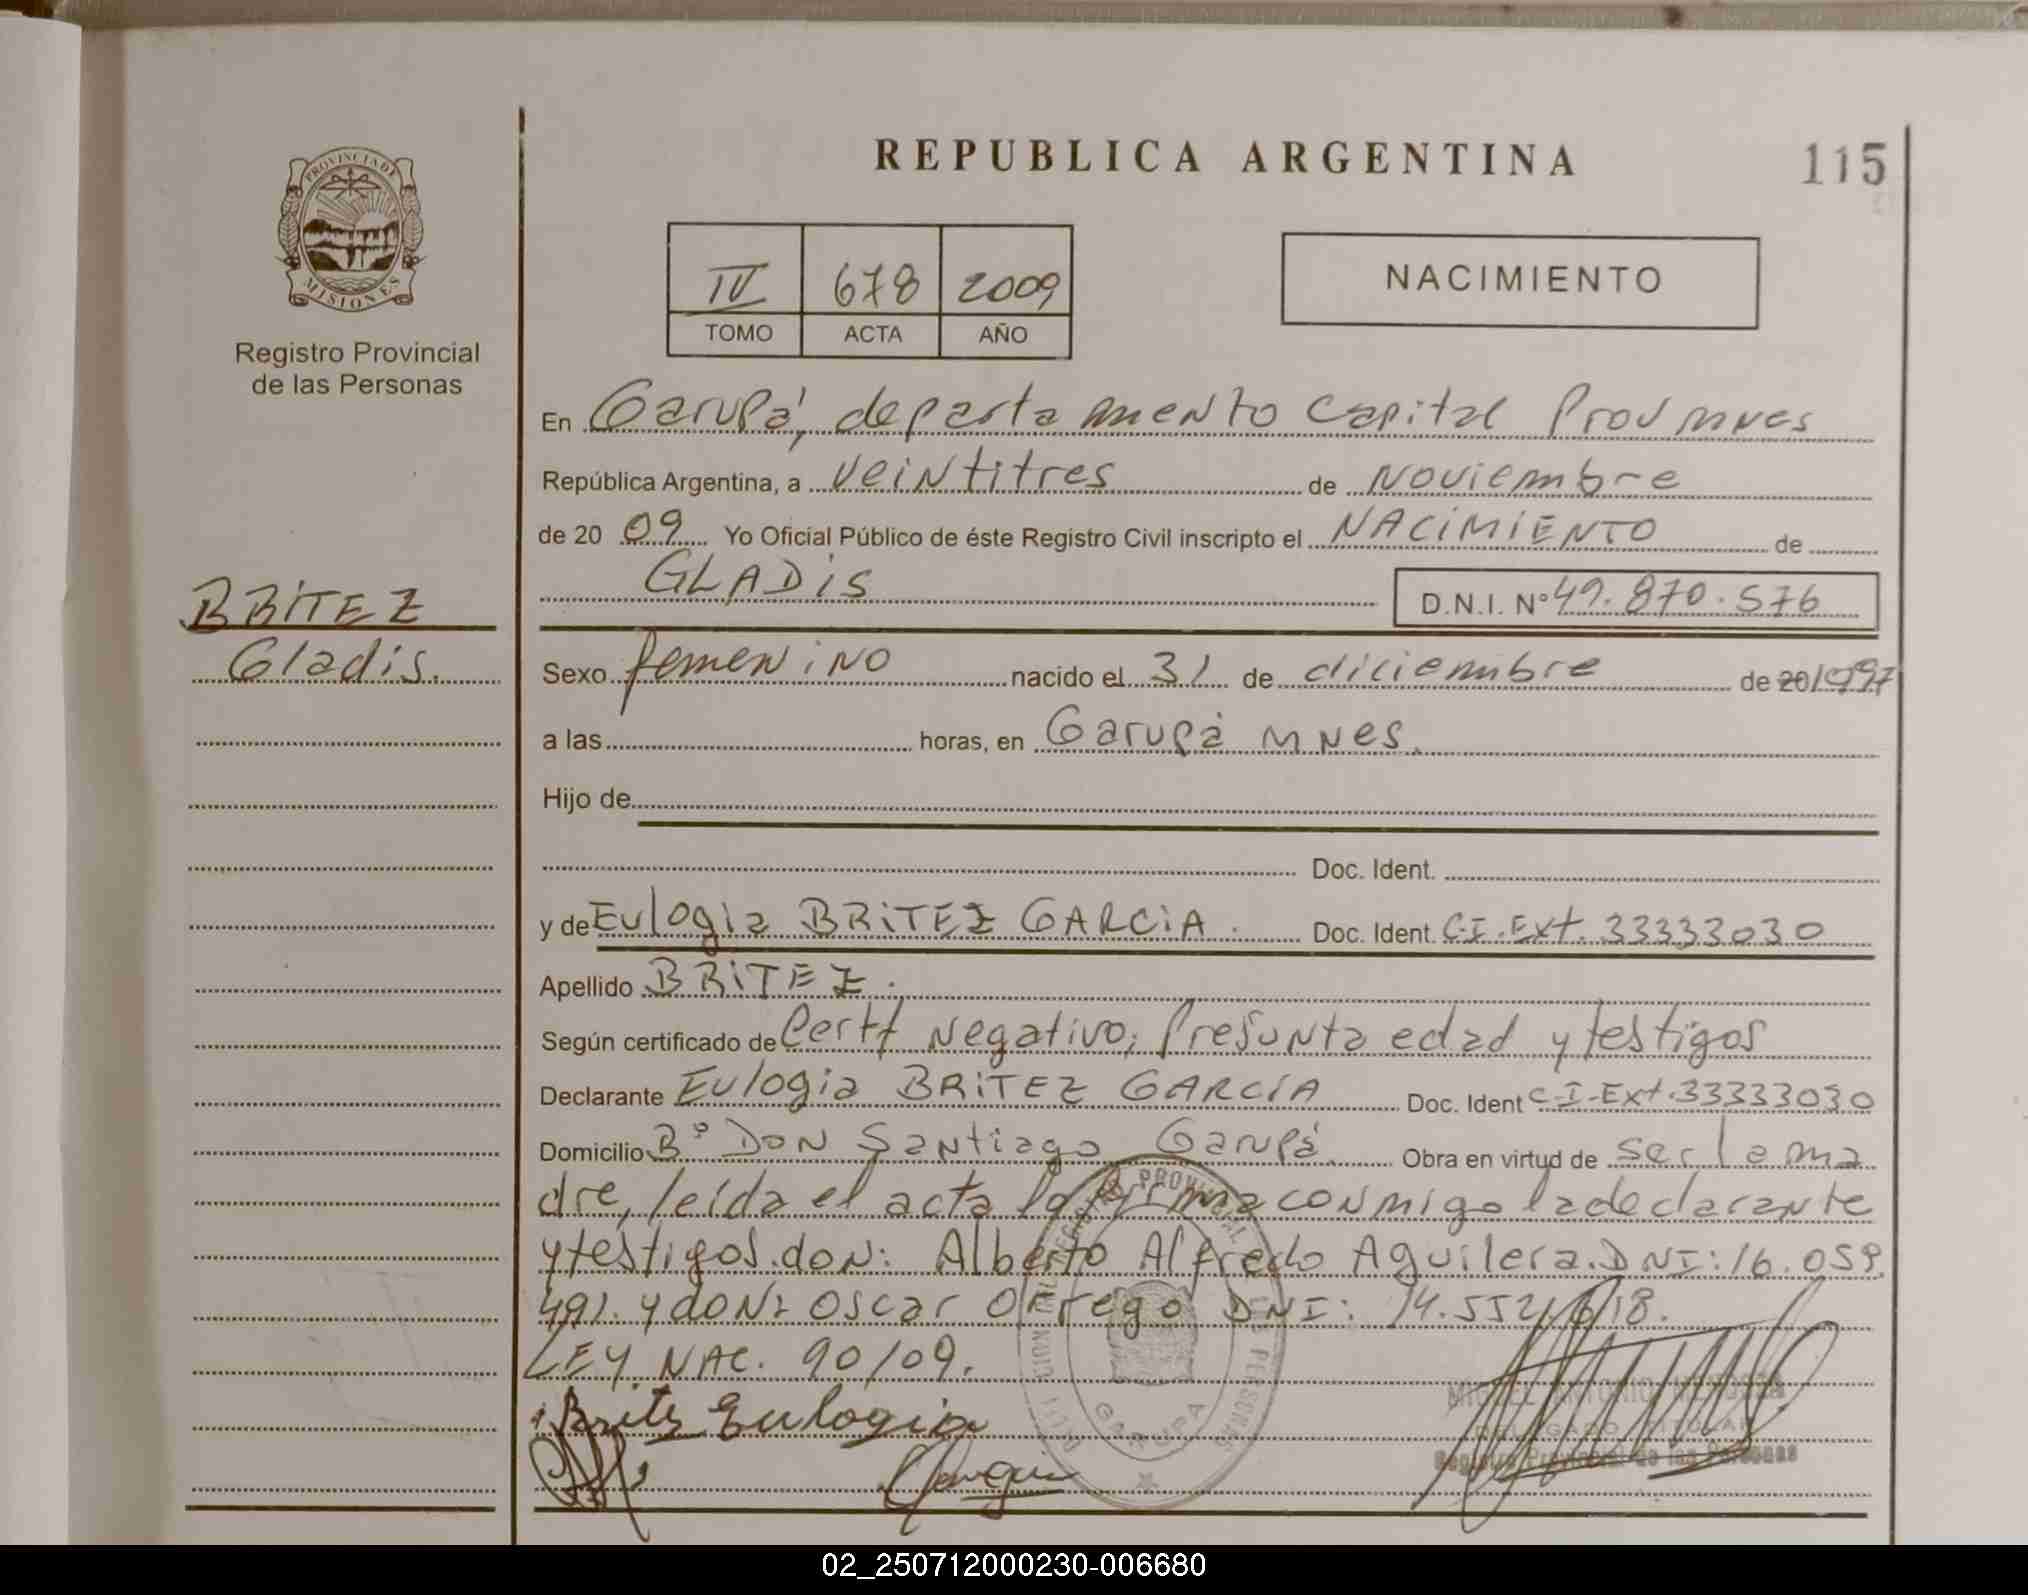 REPUBLICA ARGENTINA
115
PROVINCIA DE
MISIONES
Registro Provincial
de las Personas
IV 678 2009
TOMO ACTA AÑO
NACIMIENTO
En Garupá, departamento Capital Prov Mnes
República Argentina, a veintitres de Noviembre
de 20 09 Yo Oficial Público de éste Registro Civil inscripto el NACIMIENTO de
GLADIS D.N.I. Nº 49.870.576
BRITEZ
Gladis.
Sexo femenino nacido el 31 de diciembre de 20 1997
a las horas, en Garupá Mnes.
Hijo de
Doc. Ident.
y de Eulogia BRITEZ GARCIA. Doc. Ident. C.I. Ext. 33333030
Apellido BRITEZ.
Según certificado de Certf Negativo; Presunta edad y testigos
Declarante Eulogia BRITEZ GARCIA Doc. Ident C-I-Ext.33333030
Domicilio Bº DON Santiago Garupá. Obra en virtud de ser la ma
dre, leída el acta la firma conmigo la declarante
y testigos don: Alberto Alfredo Aguilera. DNI: 16.059.
491. y don: Oscar Orrego DNI: 14.552.618.
LEY NAC. 90/09.
Britz Eulogia
REGISTRO PROVINCIAL DE LAS PERSONAS
GARUPA
MIGUEL ANTONIO MENDOZA
DELEGADO TITULAR
Registro Provincial de las Personas
02_250712000230-006680